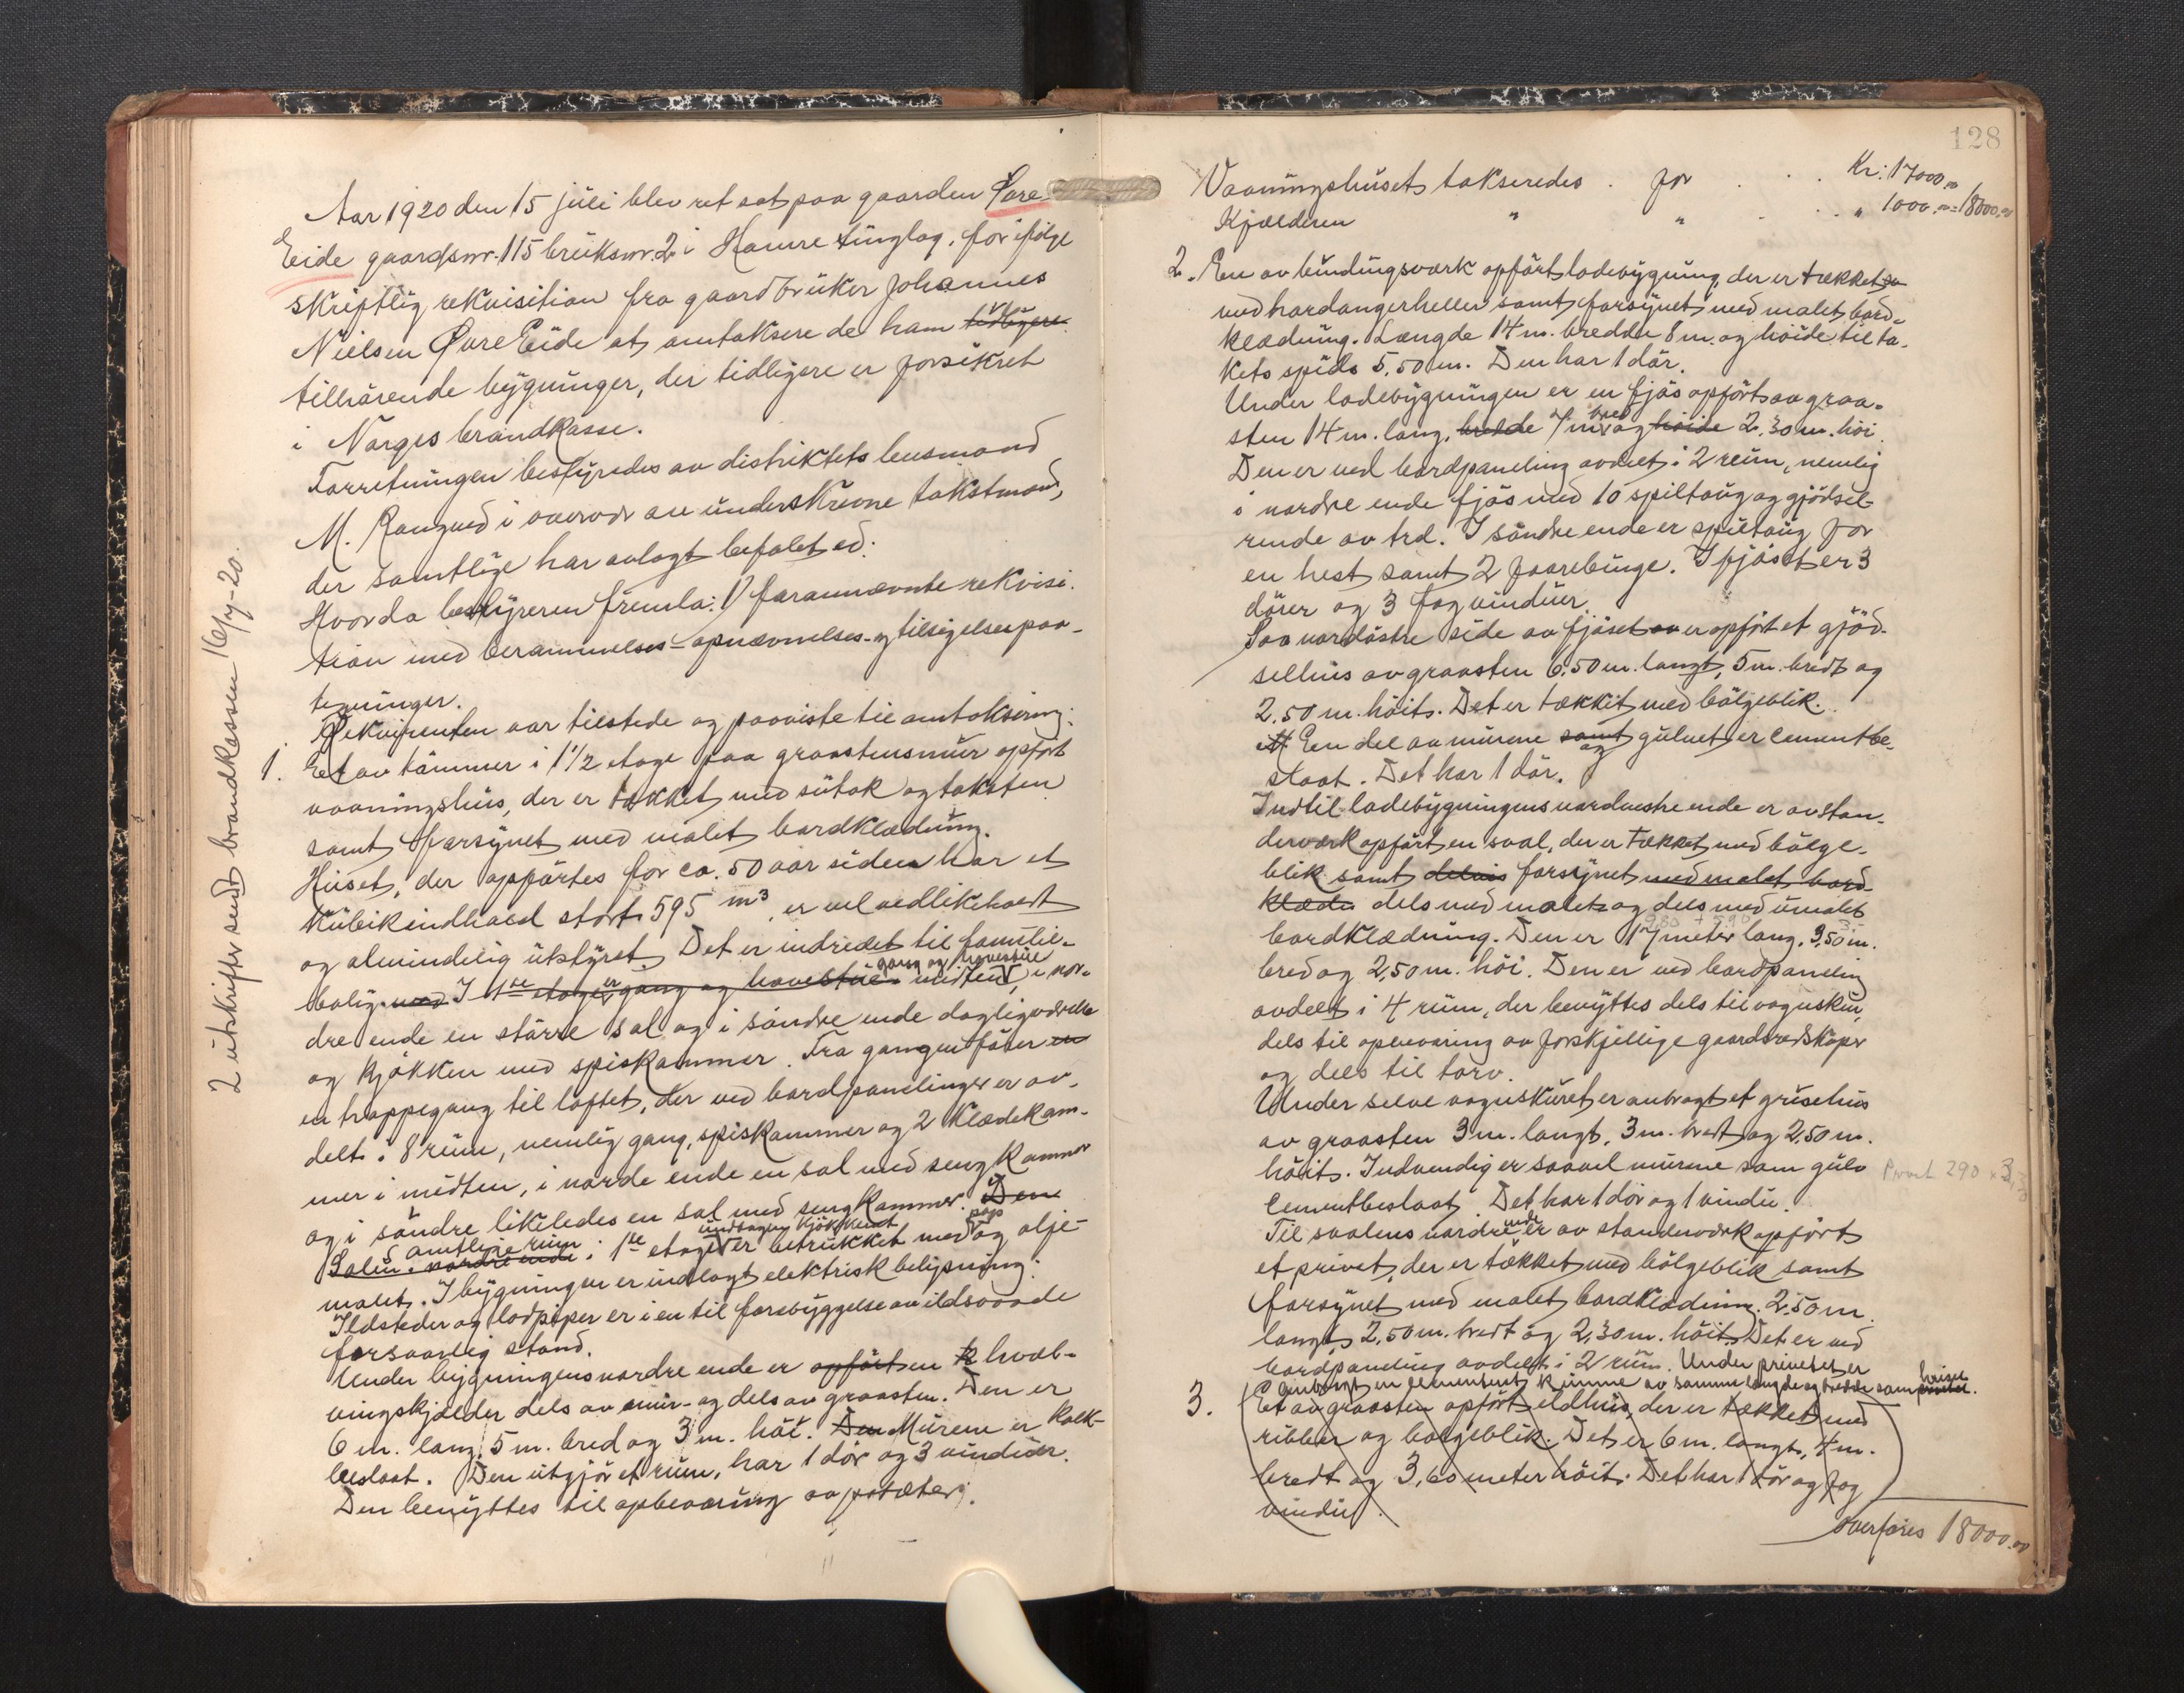 Aar 1920 den 15 juli blev ret sat paa gaarden Øvre-
Eide gaardsnr. 115 bruksnr. 2 i Hamre tinglag, for ifølge
skriftlig rekvisition fra gaardbruker Johannes
Nielsen Øvre Eide at omtaksere de ham tidligere
tilhørende bygninger, der tidligere er forsikret
i Norges brandkasse.
Forretningen bestyredes av distriktets lensmand
M. Rongved i overvær av underskrevne takstmænd,
der samtlige har avlagt befalet ed.
Hvorda bestyreren fremla: 1) foranævnte rekvisi-
tion med berammelses- opnævnelses- og tilsigelsespaa-
tegninger.
Rekvirenten var tilstede og paaviste til omtaksering:
1. Et av tømmer i 1 1/2 etage paa graastensmur opført
vaaningshus, der er tækket med sutak og taksten
samt forsynet med malet bordklædning.
Huset, der opførtes for ca. 50 aar siden har et
kubikindhold stort 595 m3, er vel vedlikeholdt
og almindelig utstyret. Det er indredet til familie-
gang og kovestue
bolig med I 1ste etage er gang og kovestue i midten, i nor-
dre ende en større sal og i søndre ende dagligværelse
og kjøkken med spiskammer. Fra gangen fører en
en trappegang til loftet, der ved bordpanelinger er av-
delt i 8 rum, nemlig gang, spiskammer og 2 klædekam-
mer i midten, i nordre ende en sal med sengkammer
og i søndre likeledes en sal med sengkammer. Den
samtlige rum undtagen kjøkkenet pap
Salen i nordre ende i 1ste etage er betrukket med og olje-
malet. I bygningen er indlagt elektrisk belysning.
Ildsteder og lodpiper er i en til forebyggelse av ildsvaade
forsvarlig stand.
Under bygningens nordre ende er opført en k hvælv-
ingskjælder dels av mur- og dels av graasten. Den er
6 m. lang, 5 m. bred og 3 m. høi. Den Murene er kalk-
beslaat. Den utgjør et rum, har 1 dør og 3 vinduer.
Den benyttes til opbevaring av poteter.
2 utskrifter sendt brandkassen 16/7-20.
128
Vaaningshuset takseredes . for . . . Kr: 17000.00
Kjælderen " " . . . " 1000.00 = 18000.00
2. En av bindingsverk opført ladebygning, der er tækket
med hardangerheller samt forsynet med malet bord-
klædning. Længde 14 m. bredde 8 m. og høide til ta-
kets spids 5,50 m. Den har 1 dør.
Under ladebygningen er en fjøs opført av graa-
bred
sten 14 m. lang, bredde 7 m. og høide 2,30 m. høi.
Den er ved bordpaneling avdelt i 2 rum, nemlig
i nordre ende fjøs med 10 spiltaug og gjødsel-
rende av træ. I søndre ende er spiltaug for
en hest samt 2 faarebinge. I fjøset er 3
dører og 3 fag vinduer.
Paa nordøstre side av fjøset er opført et gjød-
selhus av graasten 6,50 m. langt, 5 m. bredt og
2,50 m. høit. Det er tækket med bølgeblik.
En del av murene samt gulvet er cementbe-
og
slaat. Det har 1 dør.
Indtil ladebygningens nordvestre ende er av stan-
derverk opført en sval, der er tækket med bølge-
blik samt delvis forsynet med malet bord-
klædn dels med malet og dels med umalet
bordklædning. Den er 17 meter lang, 3,50 m.
bred og 2,50 m. høi. Den er ved bordpaneling
avdelt i 4 rum, der benyttes dels til vognskur,
dels til opbevaring av forskjellige gaardsredskaper
og dels til torv.
Under selve vognskuret er anbragt et grisehus
av graasten 3 m. langt, 3 m. bredt og 2,50 m.
høit. Indvendig er saavel murene som gulv
cementbeslaat. Det har 1 dør og 1 vindu.
ende
Til svalens nordre er av standerverk opført
et privet, der er tækket med bølgeblik samt
forsynet med malet bordklædning. 2,50 m.
langt, 2,50 m. bredt og 2,30 m. høit. Det er ved
bordpaneling avdelt i 2 rum. Under privetet er
anbragt en cementert kumme av samme længde og bredde som privetet.
huset
3. Et av graasten opført eldhus, der er tækket med
ribber og bølgeblik. Det er 6 m. langt, 4 m.
bredt og 3,60 meter høit. Det har 1 dør og 1 fag
vindu.
Overføres 18000.00